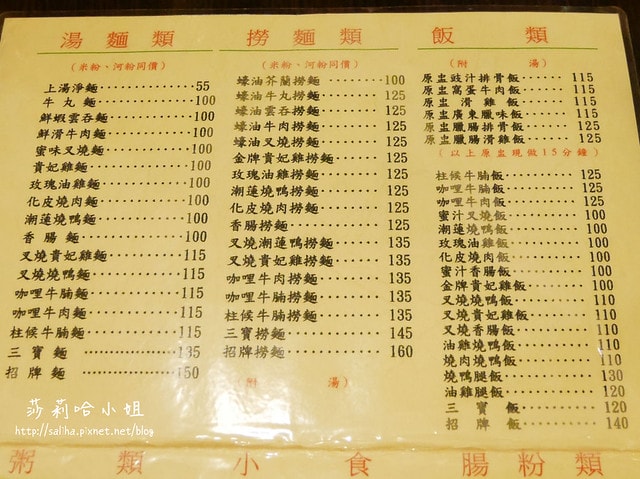 湯麵類
(米粉、河粉同價)
上湯淨麵 55
牛丸麵 100
鮮蝦雲吞麵 100
鮮滑牛肉麵 100
蜜味叉燒麵 100
貴妃雞麵 100
玫瑰油雞麵 100
化皮燒肉麵 100
潮蓮燒鴨麵 100
香腸麵 100
叉燒貴妃雞麵 115
叉燒燒鴨麵 115
咖哩牛腩麵 115
咖哩牛肉麵 115
柱候牛腩麵 115
三寶麵 135
招牌麵 150
撈麵類
(米粉、河粉同價)
蠔油芥蘭撈麵 100
蠔油牛丸撈麵 125
蠔油雲吞撈麵 125
蠔油牛肉撈麵 125
蠔油叉燒撈麵 125
金牌貴妃雞撈麵 125
玫瑰油雞撈麵 125
潮蓮燒鴨撈麵 125
化皮燒肉撈麵 125
香腸撈麵 125
叉燒潮蓮鴨撈麵 135
叉燒貴妃雞撈麵 135
咖哩牛肉撈麵 135
咖哩牛腩撈麵 135
柱候牛腩撈麵 135
三寶撈麵 145
招牌撈麵 160
附 湯)
飯類
(附 湯)
原盅豉汁排骨飯 115
原盅窩蛋牛肉飯 115
原盅滑雞飯 115
原盅廣東臘味飯 115
原盅臘腸排骨飯 125
原盅臘腸滑雞飯 125
(以上原盅現做15分鐘)
柱候牛腩飯 125
咖哩牛腩飯 125
咖哩牛肉飯 125
蜜汁叉燒飯 100
潮蓮燒鴨飯 100
玫瑰油雞飯 100
化皮燒肉飯 100
蜜汁香腸飯 100
金牌貴妃雞飯 100
叉燒燒鴨飯 110
叉燒貴妃雞飯 110
叉燒香腸飯 110
油雞燒鴨飯 110
燒肉燒鴨飯 110
燒鴨腿飯 130
油雞腿飯 120
三寶飯 120
招牌飯 140
莎莉哈小姐
http://saliha.pixnet.net/blog
粥類
小食
腸粉類